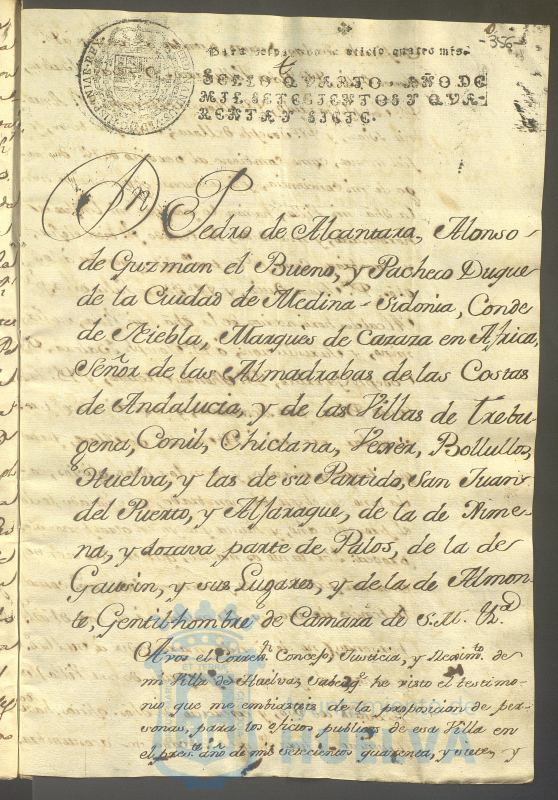 -356-
Para despachos de oficio quatro mrs.
SELLO QVARTO, AÑO DE
MIL SETECIENTOS Y QVA-
RENTA Y SIETE.
Dn Pedro de Alcantara, Alonso
de Guzmán el Bueno, y Pacheco Duque
de la Cuidad de Medina-Sidonia, Conde
de Niebla, Marques de Cazaza en Africa,
Señor de las Almadrabas de las Costas
de Andalucia, y de las Villas de Trebu
gena, Conil, Chiclana, Vexer, Bollullos,
Huelva, y las de su Partido, San Juan
del Puerto, y Alfaraque, de la de Xime
na, y dozava parte de Palos, de la de
Gausin, y sus Lugares, y de la de Almon
te, Gentilhombre de Camara de S. M. &ca
A vos el Correxr. Concejo, Justicia, y Reximto. de
mi Villa de Huelva: Sabed q. he visto el testimo
nio que me embiasteis de la proposicion de per
sonas, para los oficios publicos de esa Villa en
el preste. año de mil setecientos quarenta, y siete, y